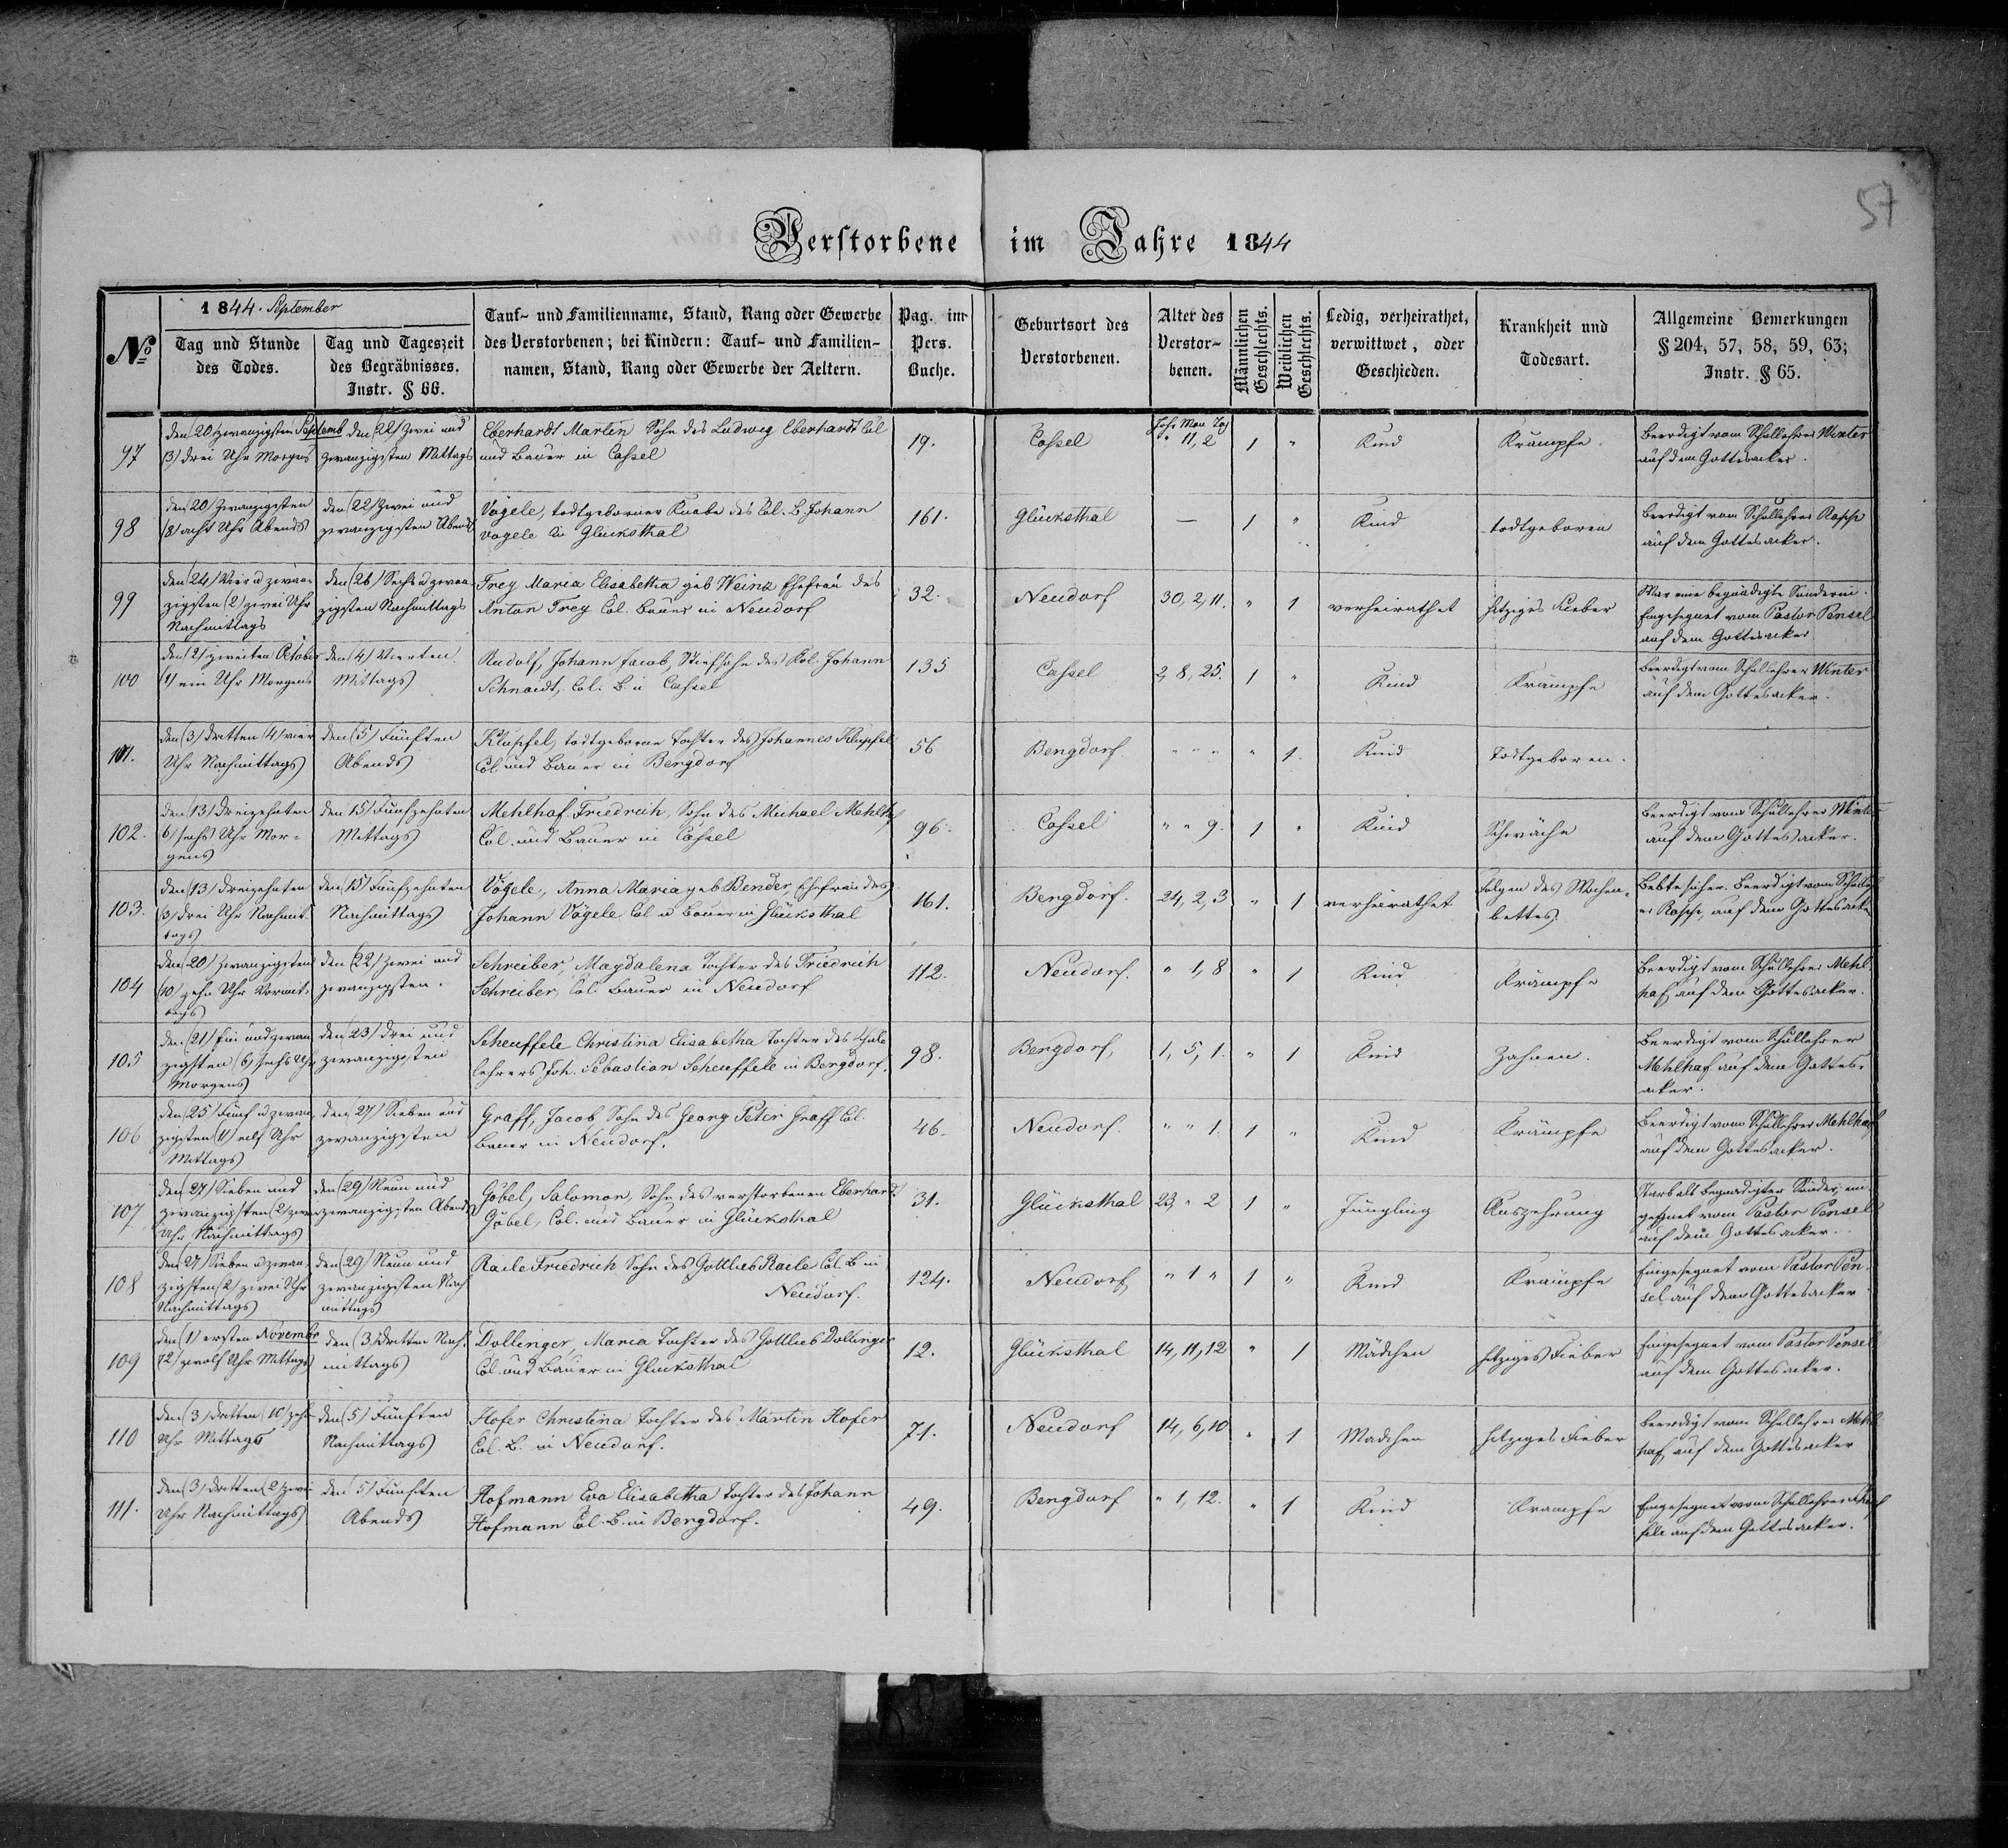 57
Verstorbene im Jahre 1844
No
1844. September
Tag und Stunde
des Todes.
Tag und Tageszeit
des Begräbnisses.
Instr. § 66.
Tauf- und Familienname, Stand, Rang oder Gewerbe
des Verstorbenen; bei Kindern: Tauf- und Familien-
namen, Stand, Rang oder Gewerbe der Aeltern.
Pag. im
Pers.
Buche.
Geburtsort des
Verstorbenen.
Alter des
Verstor-
benen.
Männlichen
Geschlechts.
Weiblichen
Geschlechts.
Ledig, verheirathet,
verwittwet, oder
Geschieden.
Krankheit und
Todesart.
Allgemeine Bemerkungen
§ 204, 57, 58, 59, 63;
Instr. § 65.
97
den (20) zwanzigsten Septemb
(3) drei Uhr Morgens
den (22) zwei und
zwanzigsten Mittags
Eberhardt Martin Sohn des Ludwig Eberhardt Col
und Bauer in Cassel
19.
Cassel
Jahr Mon Tag
" 11, 2
1
"
Kind
Krämpfe.
Beerdigt vom Schullehrer Winter
auf dem Gottesacker.
98
den (20) zwanzigsten
(8) acht Uhr Abends
den (22) zwei und
zwanzigsten Abends
Vögele, todtgeborner Knabe des Col. B. Johann
Vögele in Glücksthal
161.
Glücksthal
—
1
"
Kind
todtgeboren
Beerdigt vom Schullehrer Rasch
auf dem Gottesacker.
99
den (24) Vier u zwan-
zigsten (2) zwei Uhr
Nachmittags
den (26) Sechs u zwan
zigsten Nachmittags
Frey Maria Elisabetha geb Weinz Ehefrau des
Anton Frey Col. Bauer in Neudorf
32.
Neudorf
30, 2, 11.
"
1
verheirathet
hitziges Fieber
War eine begnadigte Sünderin.
Eingesegnet vom Pastor Pensel
auf dem Gottesacker
100
den (2) zweiten October
(1) ein Uhr Morgens
den (4) Vierten
Mittags
Rudolf, Johann Jacob, Stiefsohn des Col. Johann
Schnaidt, Col. B. in Cassel
135
Cassel
2, 8, 25.
1
"
Kind
Krämpfe
Beerdigt vom Schullehrer Winter
auf dem Gottesacker.
101.
den (3) dritten (4) vier
Uhr Nachmittags
den (5) Fünften
Abends
Klüpfel, todtgeborne Tochter des Johannes Klüpfel
Col und Bauer in Bergdorf
56
Bergdorf.
" " "
"
1.
Kind
Todtgeboren.
102.
den (13) dreizehnten
6) sechs Uhr Mor-
gens
den (15) Fünfzehnten
Mittags
Mehlhaf Friedrich, Sohn des Michael Mehlhaf
Col. und Bauer in Cassel
96.
Cassel
" " 9.
1
"
Kind
Schwäche
Beerdigt vom Schullehrer Winter
auf dem Gottesacker.
103.
den (13) dreizehnten
(3) drei Uhr Nachmit-
tags
den (15) Fünfzehnten
Nachmittags
Vögele, Anna Maria geb Bender, Ehefrau des
Johann Vögele Col u Bauer in Glücksthal
161.
Bergdorf.
24, 2, 3
"
1
verheirathet
Folgen des Wochen-
bettes.
Beerdigt vom Schulleh
er Rasch, auf dem Gottesacke
104
den (20) zwanzigsten
(10) zehn Uhr Vormit-
tags
den (22) zwei und
zwanzigsten.
Schreiber, Magdalena Tochter des Friedrich
Schreiber, Col. Bauer in Neudorf
112.
Neudorf.
" 1, 8
"
1
Kind
Krämpfe
Beerdigt vom Schullehrer Mehl
haf auf dem Gottesacker.
105
den (21) Ein und zwan
zigsten (6) sechs Uhr
Morgens
den (23) drei und
zwanzigsten
Scheuffele Christina Elisabetha Tochter des Schul
lehrers Joh. Sebastian Scheuffele in Bergdorf.
98.
Bergdorf,
1, 5, 1.
"
1
Kind
Zahnen.
Beerdigt vom Schullehrer
Mehlhaf auf dem Gottes-
acker.
106
den (25) Fünf u zwan
zigsten (11) eilf Uhr
Mittags
den (27) Sieben und
zwanzigsten
Graff, Jacob Sohn des Georg Peter Graff Col.
Bauer in Neudorf.
46.
Neudorf.
" " 1.
1
"
Kind
Krämpfe
Beerdigt vom Schullehrer Mehlhaf
auf dem Gottesacker.
107
den (27) Sieben und
zwanzigsten (2) zwei
Uhr Nachmittags
den (29) Neun und
zwanzigsten Abends
Göbel, Salomon, Sohn des verstorbenen Eberhard
Göbel, Col. und Bauer in Glücksthal
31.
Glücksthal
23, " 2
1
"
Jüngling
Auszehrung
Starb als begnadigter Sünder, ein-
gesegnet vom Pastor Pensel
auf dem Gottesacker.
108
den (27) Sieben u zwan
zigsten (2) zwei Uhr
Nachmittags
den (29) Neun und
zwanzigsten Nach
mittags
Raile Friedrich Sohn des Gottlieb Raile Col. B in
Neudorf.
124.
Neudorf,
" 1 "
1
"
Kind
Krämpfe
Eingesegnet vom Pastor Pen-
sel auf dem Gottesacker
109
den (1) ersten Novembr
(12) zwölf Uhr Mittags
den (3) dritten Nach-
mittags
Dollinger, Maria Tochter des Gottlieb Dollinger
Col. und Bauer in Glücksthal
12.
Glücksthal
14, 11, 12
"
1
Mädchen
hitziges Fieber
Eingesegnet vom Pastor Pensel
auf dem Gottesacker.
110
den (3) dritten (10) zehn
Uhr Mittags
den (5) Fünften
Nachmittags
Hofer Christina Tochter des Martin Hofer
Col. B. in Neudorf.
71.
Neudorf
14, 6, 10
"
1
Mädchen
hitziges Fieber
Beerdigt vom Schullehrer Mehl
haf, auf dem Gottesacker
111.
den (3) dritten (2) zwei
Uhr Nachmittags
den 5) Fünften
Abends
Hofmann Eva Elisabetha Tochter des Johann
Hofmann Col. B. in Bergdorf.
49.
Bergdorf
" 1, 12.
"
1
Kind
Krämpfe
Eingesegnet vom Schullehrer Scheuf
fele auf dem Gottesacker.